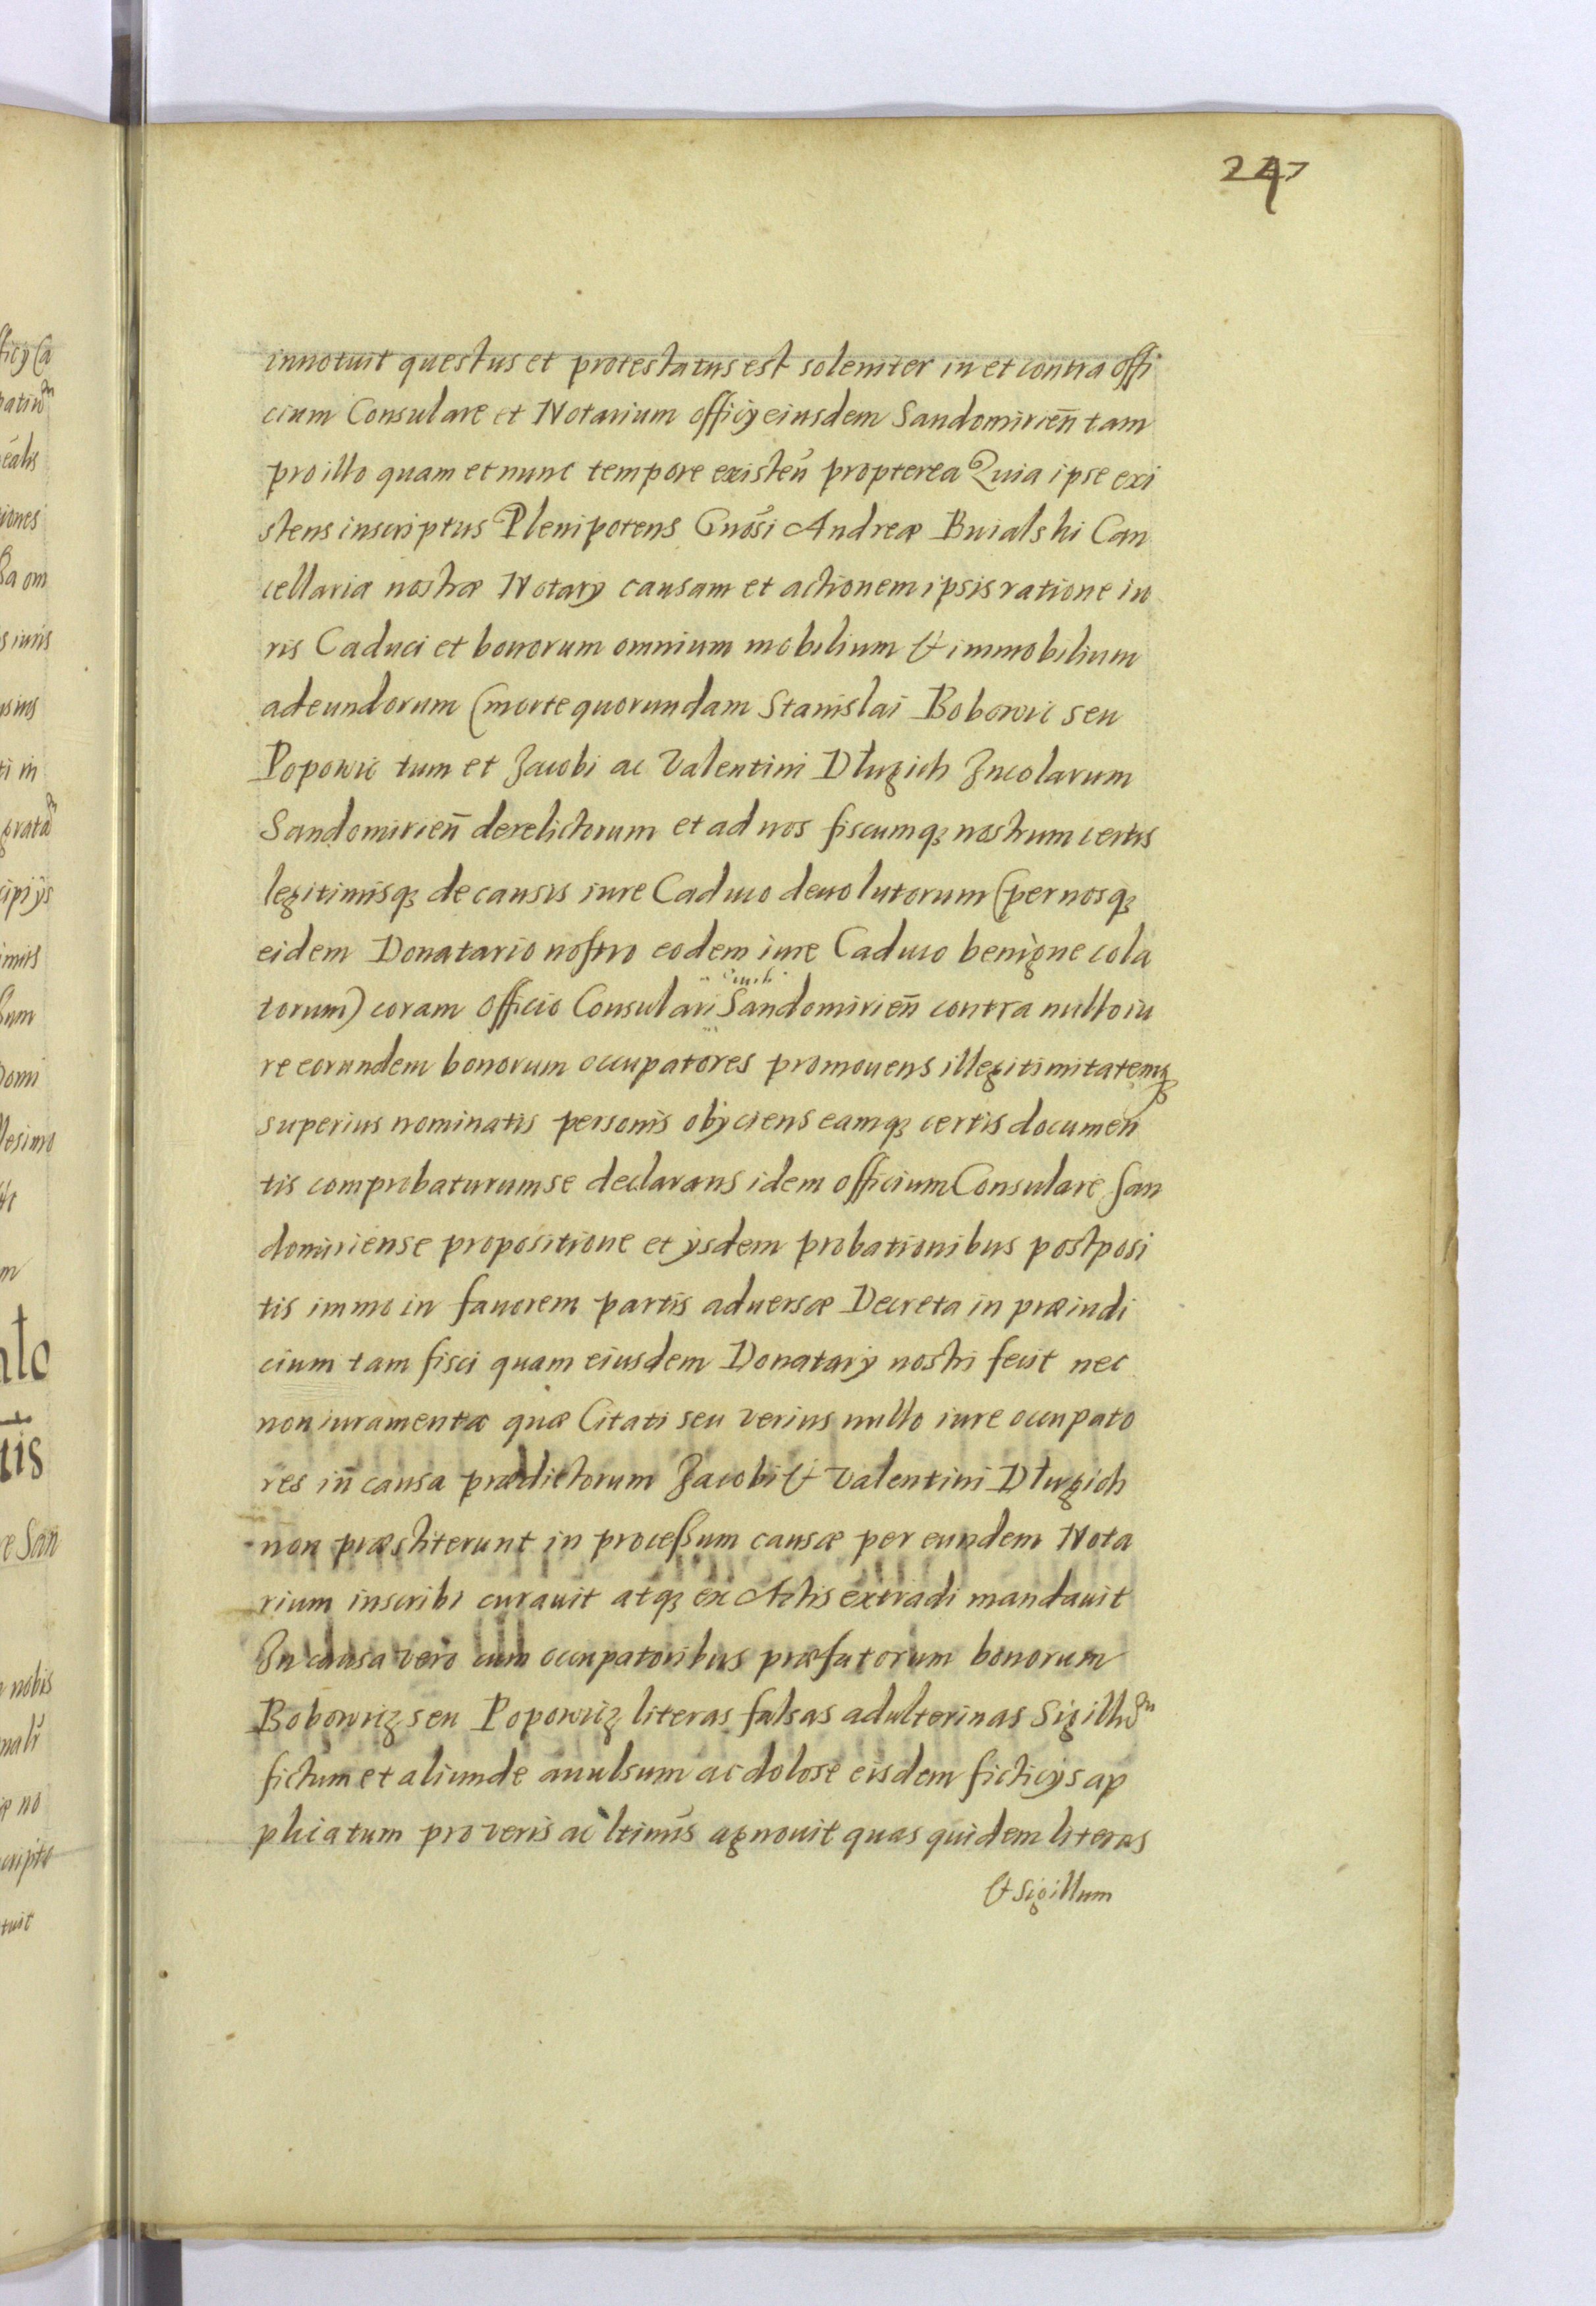 247
innotuit questus et protestatus est solemiter in et contra offi
cium Consulare et Notarium officÿ eiusdem Sandomirien̄ tam
pro illo quam et nunc tempore existen̄ propterea Quia ipse exi
stens inscriptus Plenipotens Gnōsi Andreæ Buialski Can
cellariæ nostræ Notarÿ causam et actionem ipsis ratione iu
ris Caduci et bonorum omnium mobilium & immobilium
adeundorum (morte quorundam Stanislai Bobowic seu
Popowic tum et Jacobi ac Valentini Dłuzich Incolarum
Sandomirien̄ derelictorum et ad nos fiscumq; nostrum certis
legitimisq; de causis iure Caduco deuolutorum (per nosq;
eidem Donatario nostro eodem iure Caduco benigne cola
torum) coram officio Consulari Sandomirien̄ contra nullo iu
re eorundem bonorum occupatores promouens illegitimitatemq;
superius nominatis personis obÿciens eamq; certis documen
tis comprobaturum se declarans idem officium Consulare San
domiriense propositione et ÿsdem probationibus postposi
tis immo in fauorem partis aduersæ Decreta in præiudi
cium tam fisci quam eiusdem Donatarÿ nostri fecit nec
non iuramenta quæ Citati seu verius nullo iure occupato
res in causa prædictorum Jacobi & Valentini Dłuzich
non præstiterunt in processum causæ per eundem Nota
rium inscribi curauit atq; ex Actis extradi mandauit
In causa vero cum occupatoribus præfatorum bonorum
Bobowicz seu Popowicz literas falsas adulterinas Sigillum
fictum et aliunde auulsum ac dolose eisdem ficticÿs ap
plicatum pro veris ac ltimis agnouit quas quidem literas
& Sigillum